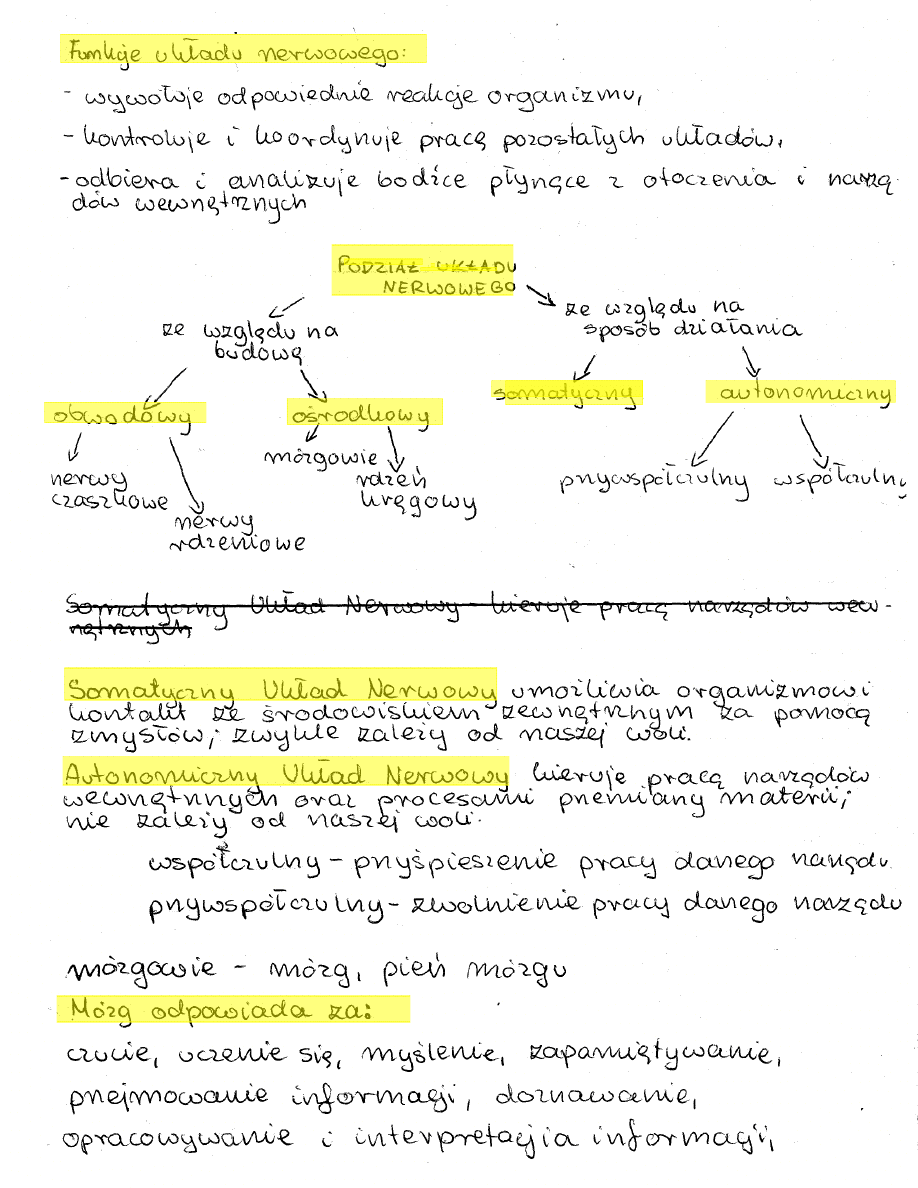 Funkcje układu nerwowego:
- wywołuje odpowiednie reakcje organizmu,
- kontroluje i koordynuje pracę pozostałych układów,
- odbiera i analizuje bodźce płynące z otoczenia i narzą-
dów wewnętrznych
PODZIAŁ UKŁADU
NERWOWEGO
ze względu na
budowę
ze względu na
sposób działania
obwodowy
ośrodkowy
somatyczny
autonomiczny
nerwy
czaszkowe
nerwy
rdzeniowe
mózgowie
rdzeń
kręgowy
przywspółczulny
współczulny
Somatyczny Układ Nerwowy - kieruje pracą narządów wew-
nętrznych
Somatyczny Układ Nerwowy umożliwia organizmowi
kontakt ze środowiskiem zewnętrznym za pomocą
zmysłów; zwykle zależy od naszej woli.
Autonomiczny Układ Nerwowy kieruje pracą narządów
wewnętrznych oraz procesami przemiany materii;
nie zależy od naszej woli.
współczulny - przyśpieszenie pracy danego narządu
przywspółczulny - zwolnienie pracy danego narządu
mózgowie - mózg, pień mózgu
Mózg odpowiada za:
czucie, uczenie się, myślenie, zapamiętywanie,
przejmowanie informacji, doznawanie,
opracowywanie i interpretacjia informacji,